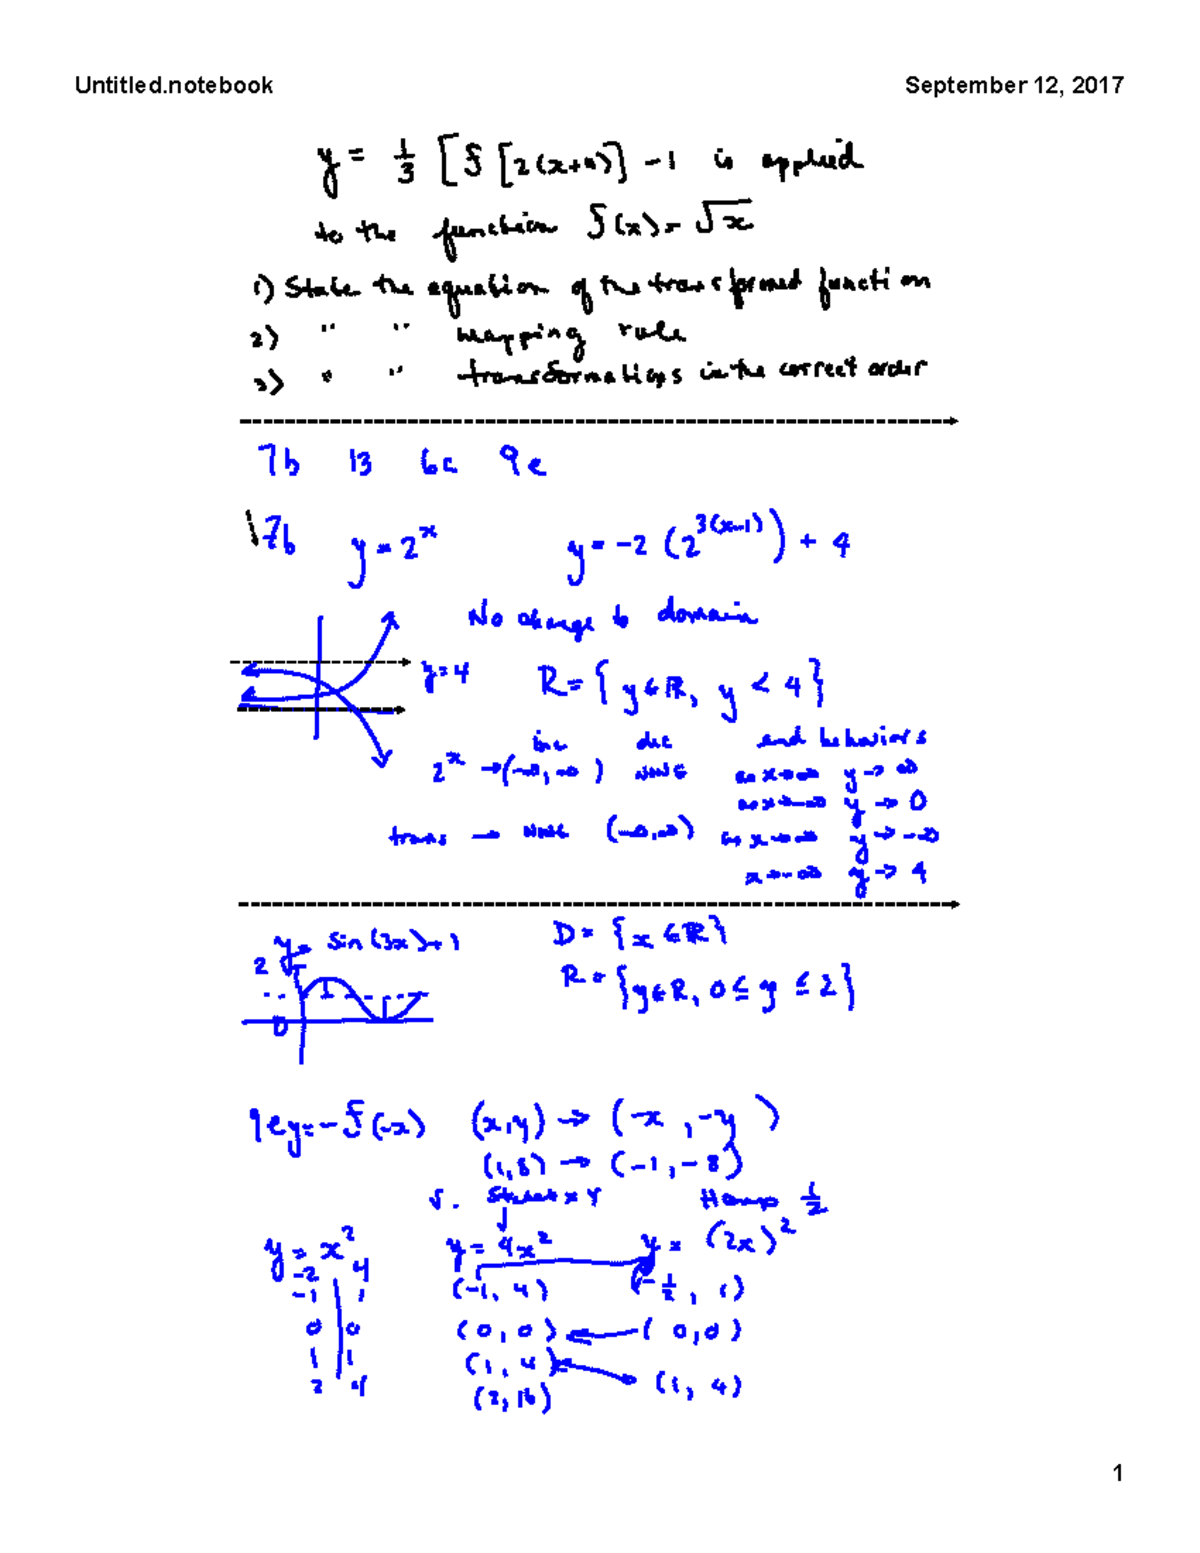 Untitled.notebook September 12, 2017
y = 1/3 [f [2(x+4)] - 1 is applied
to the function f(x) = √x
1) State the equation of the transformed function
2) " " mapping rule
3) " " transformations in the correct order
7b 13 6c 9e
7b y = 2^x y = -2 (2^3(x-1)) + 4
No change to domain
y = 4 R = {y ∈ R, y < 4}
inc dec end behaviors
2^x → (-∞, ∞) NONE as x→∞ y → ∞
as x→-∞ y → 0
trans → NONE (-∞, ∞) as x→∞ y → -∞
x→-∞ y → 4
y = sin(3x) + 1 D = {x ∈ R}
2 R = {y ∈ R, 0 ≤ y ≤ 2}
1
0
9e y = -f(-x) (x, y) → (-x, -y)
(1, 8) → (-1, -8)
V. Stretch x 4 H comp 1/2
y = x^2 y = 4x^2 y = (2x)^2
-2 4
-1 1 (-1, 4) (-1/2, 1)
0 0 (0, 0) (0, 0)
1 1 (1, 4)
2 4 (2, 16) (1, 4)
1